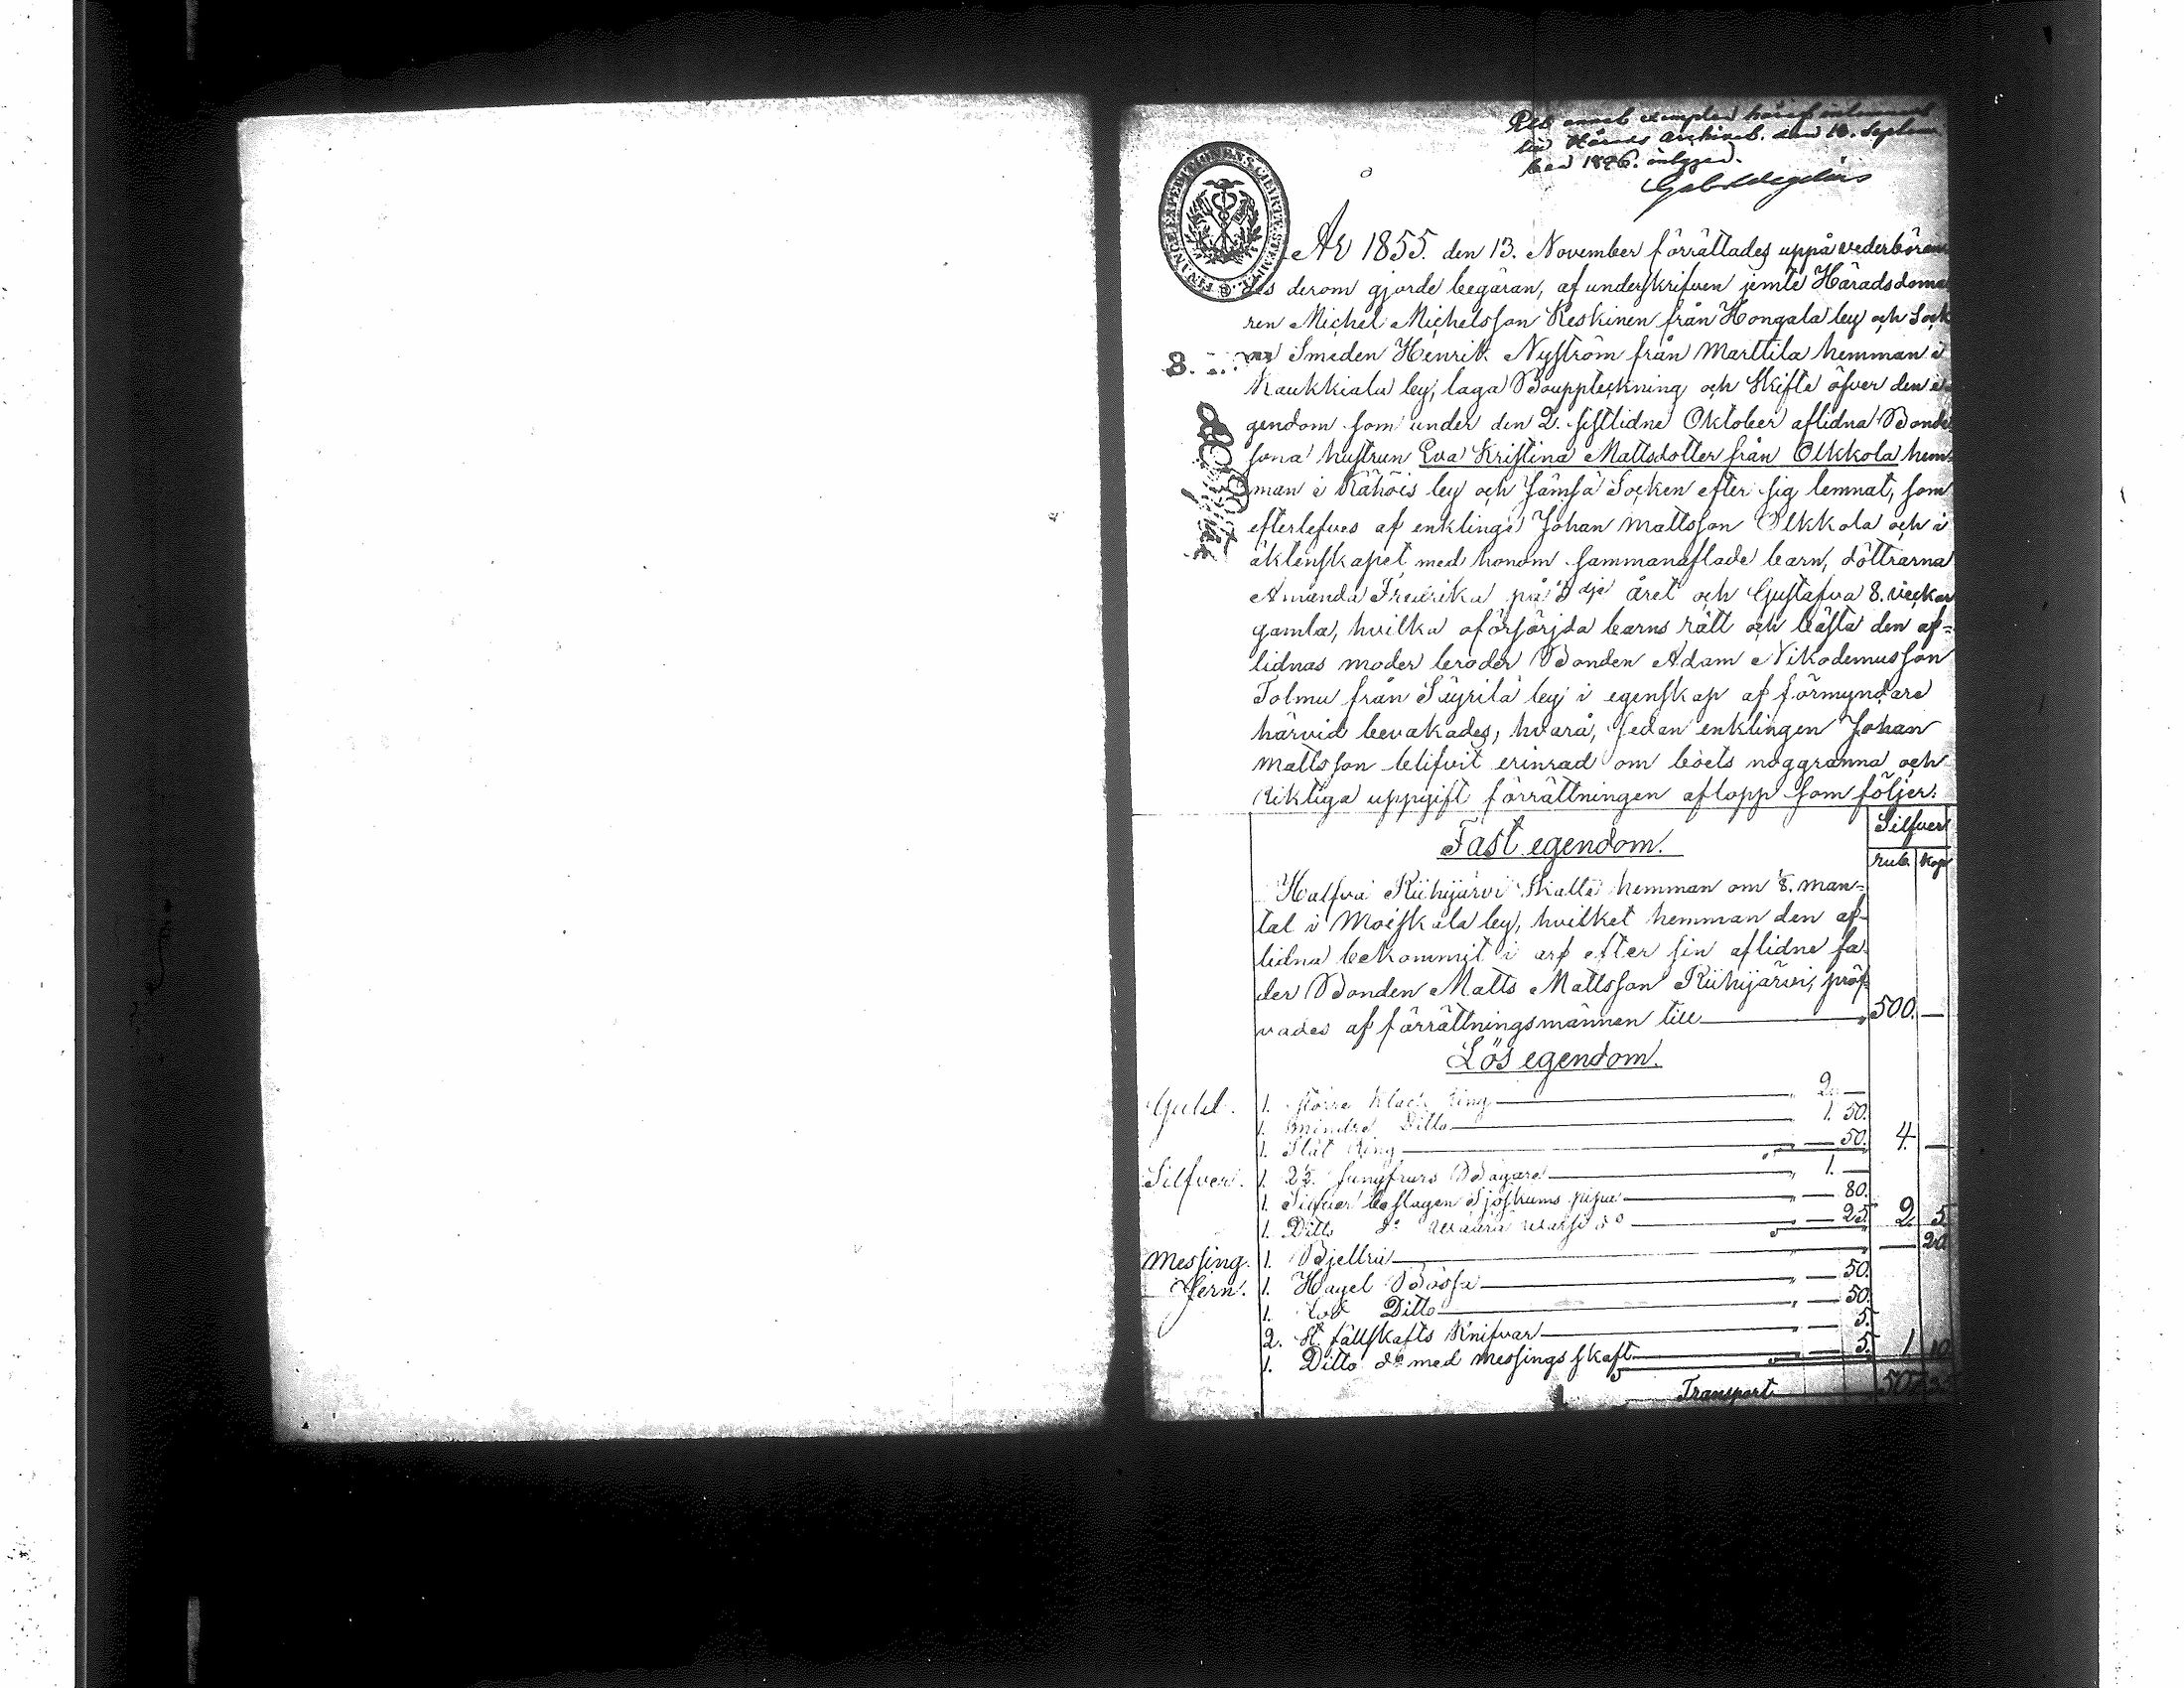 annat exemplar häraf inlemnadt
till Härads Archivet den 10. Septem
ber 1856. intygar.
År 1855. den 13. November förrättades uppå vederböran
des derom gjorde begäran, af underskrifven jemte Häradsdoma
ren Michel Michelsson Keskinen från Hongala by och Sock
Smeden Henrik Nyström från Marttila hemman i
8.
Kaukkiala by, laga Bouppteckning och Skifte öfver den e
gendom som under den 2. sistlidne Oktober aflidna Bonde
sona hustrun Eva Kristina Mattsdotter från Olkkola hem
man i Kähöis by och Jämsä Socken efter sig lemnat, som
efterlefves af enklinge Johan Mattsson Olkkola och i
äktenskapet med honom sammanaflade barn, döttrarna
Amanda Fredrika på 3dje året och Gustafva 8. veckor
gamla, hvilka oförsörjda barns rätt och bästa den af=
lidnas moder broder Bonden Adam Nikodemusson
Tolmu från Säyrilä by i egenskap af förmyndare
härvid bevakades, hvarå, sedan enklingen Johan
Mattsson blifvit erinrad om boets noggranna och
riktiga uppgift förrättningen aflopp som följer:
Silfver
Fast egendom.
rub. kop
Halfva Riihijärvi Skatte hemman om 1/8. man=
tal i Moiskala by, hvilket hemman den af-
lidna bekommit i arf efter sin aflidne fa-
der Bonden Matts Mattsson Riihijärvi, pröf-
vades af förrättningsmännen till 500. —
Lös egendom.
Guld. 1. större klack ring 2. —
1. mindre Ditto 1. 50.
1. Slät Ring — 50. 4. —
Silfver. 1. Jungfrurs Bägare 1. —
1. Silfver beslagen Sjöskums pipa — 80.
1. Ditto do — 25. 2. 5.
Messing. 1. Bjellra — 20
Jern. 1. Hagel Bössa — 50.
1. Lod Ditto — 50.
2. St. fällskafts Knifvar — 5.
1. Ditto do med messings skaft — 5. 1. 10
Transport